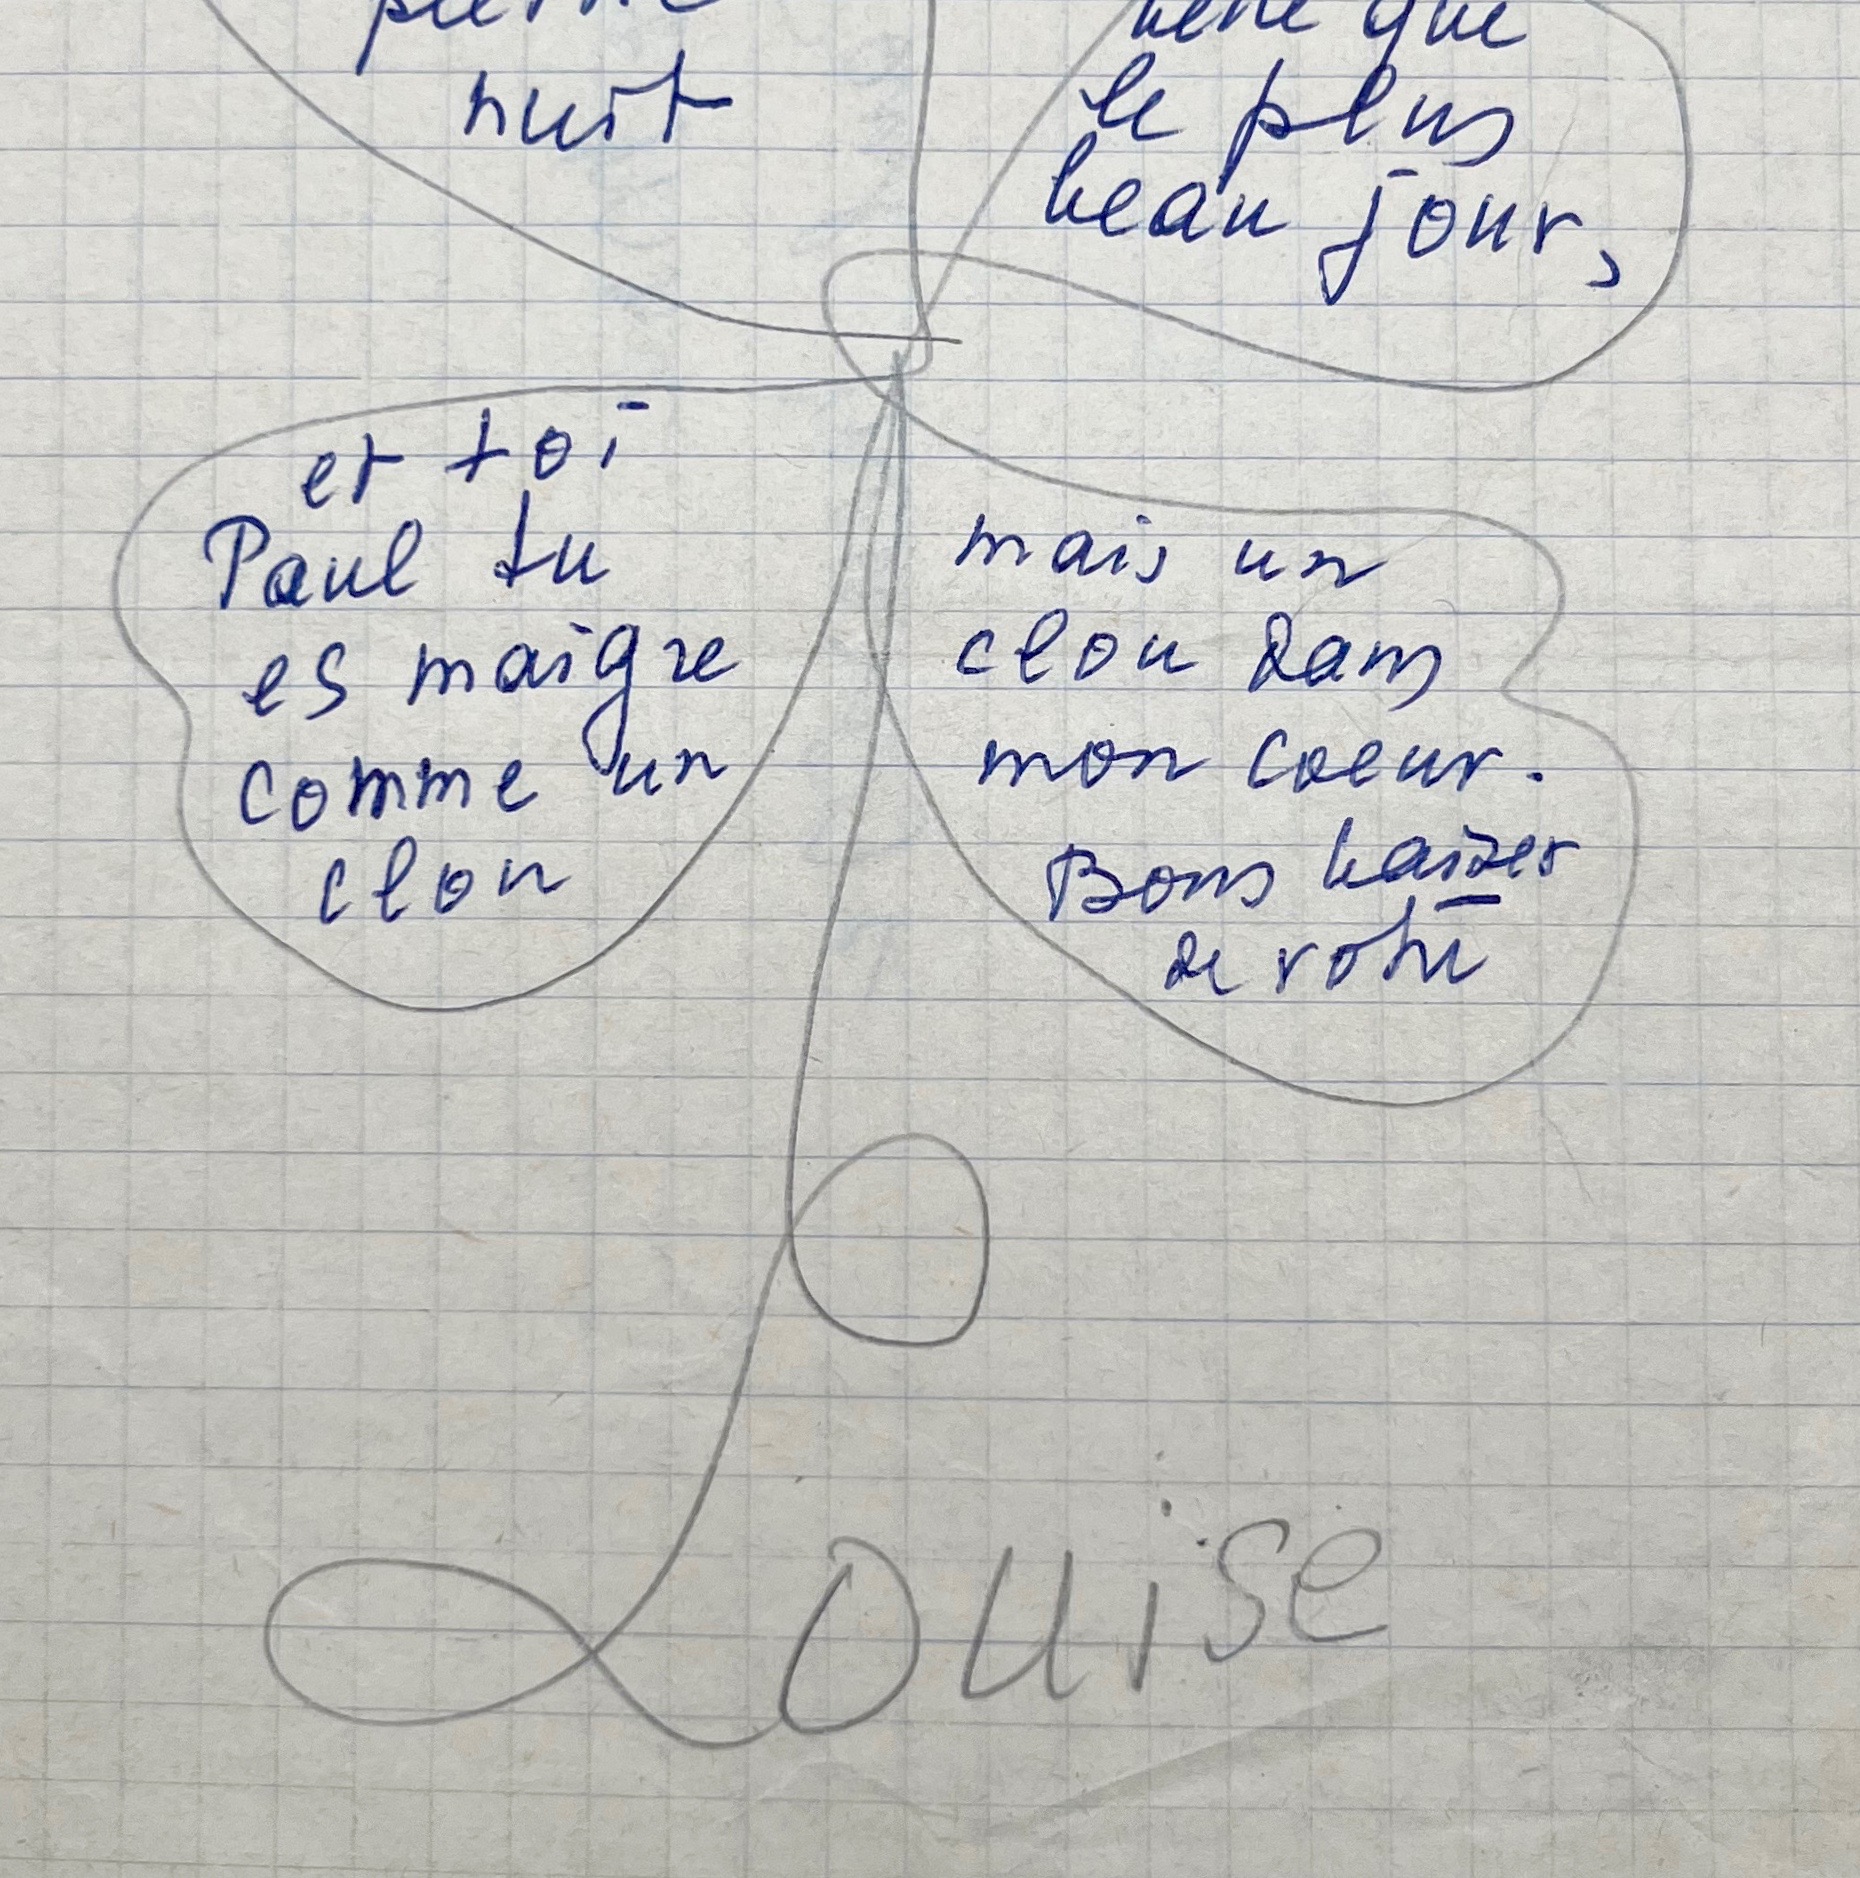 pleine
nuit
belle que
le plus
beau jour,
et toi
Paul tu
es maigre
comme un
clou
mais un
clou dans
mon coeur.
Bons baiser
de
Louise